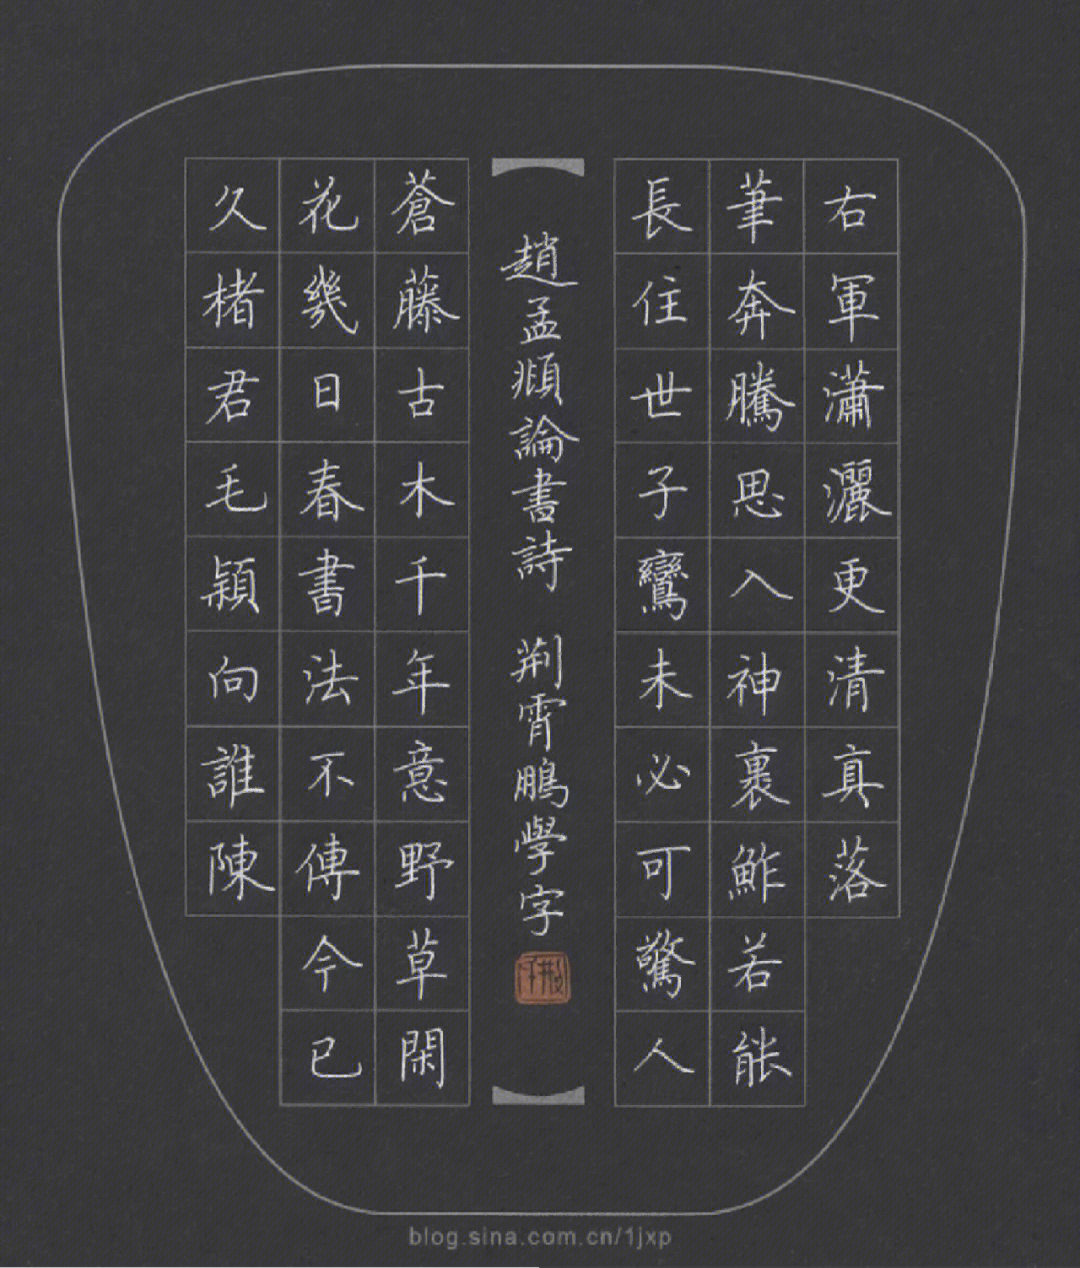 右軍瀟灑更清真落
筆奔騰思入神裹鮓若能
長住世子鸞未必可驚人
趙孟頫論書詩 荆霄鵬學字
蒼藤古木千年意野草閑
花幾日春書法不傳今已
久楮君毛穎向誰陳
blog.sina.com.cn/1jxp